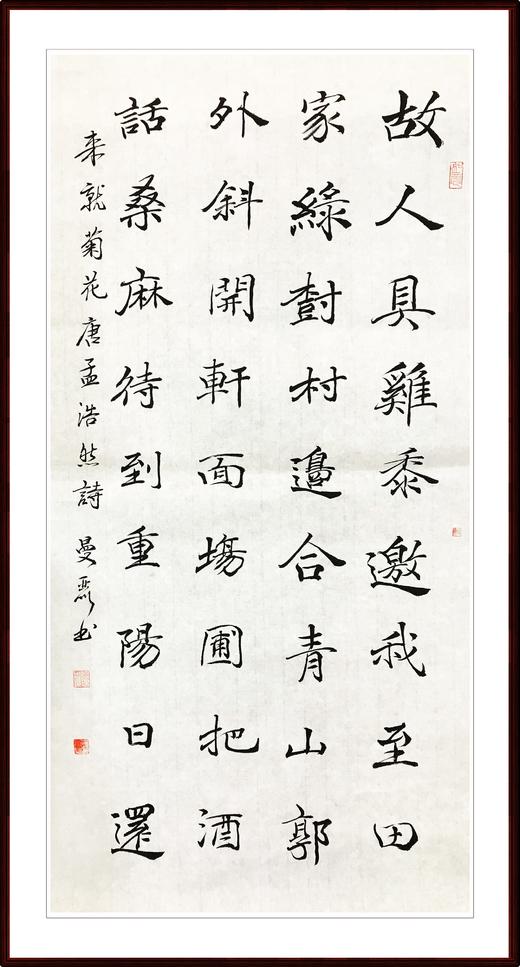 故人具雞黍邀我至田
家綠樹村邊合青山郭
外斜開軒面場圃把酒
話桑麻待到重陽日還
来就菊花唐孟浩然詩 曼書